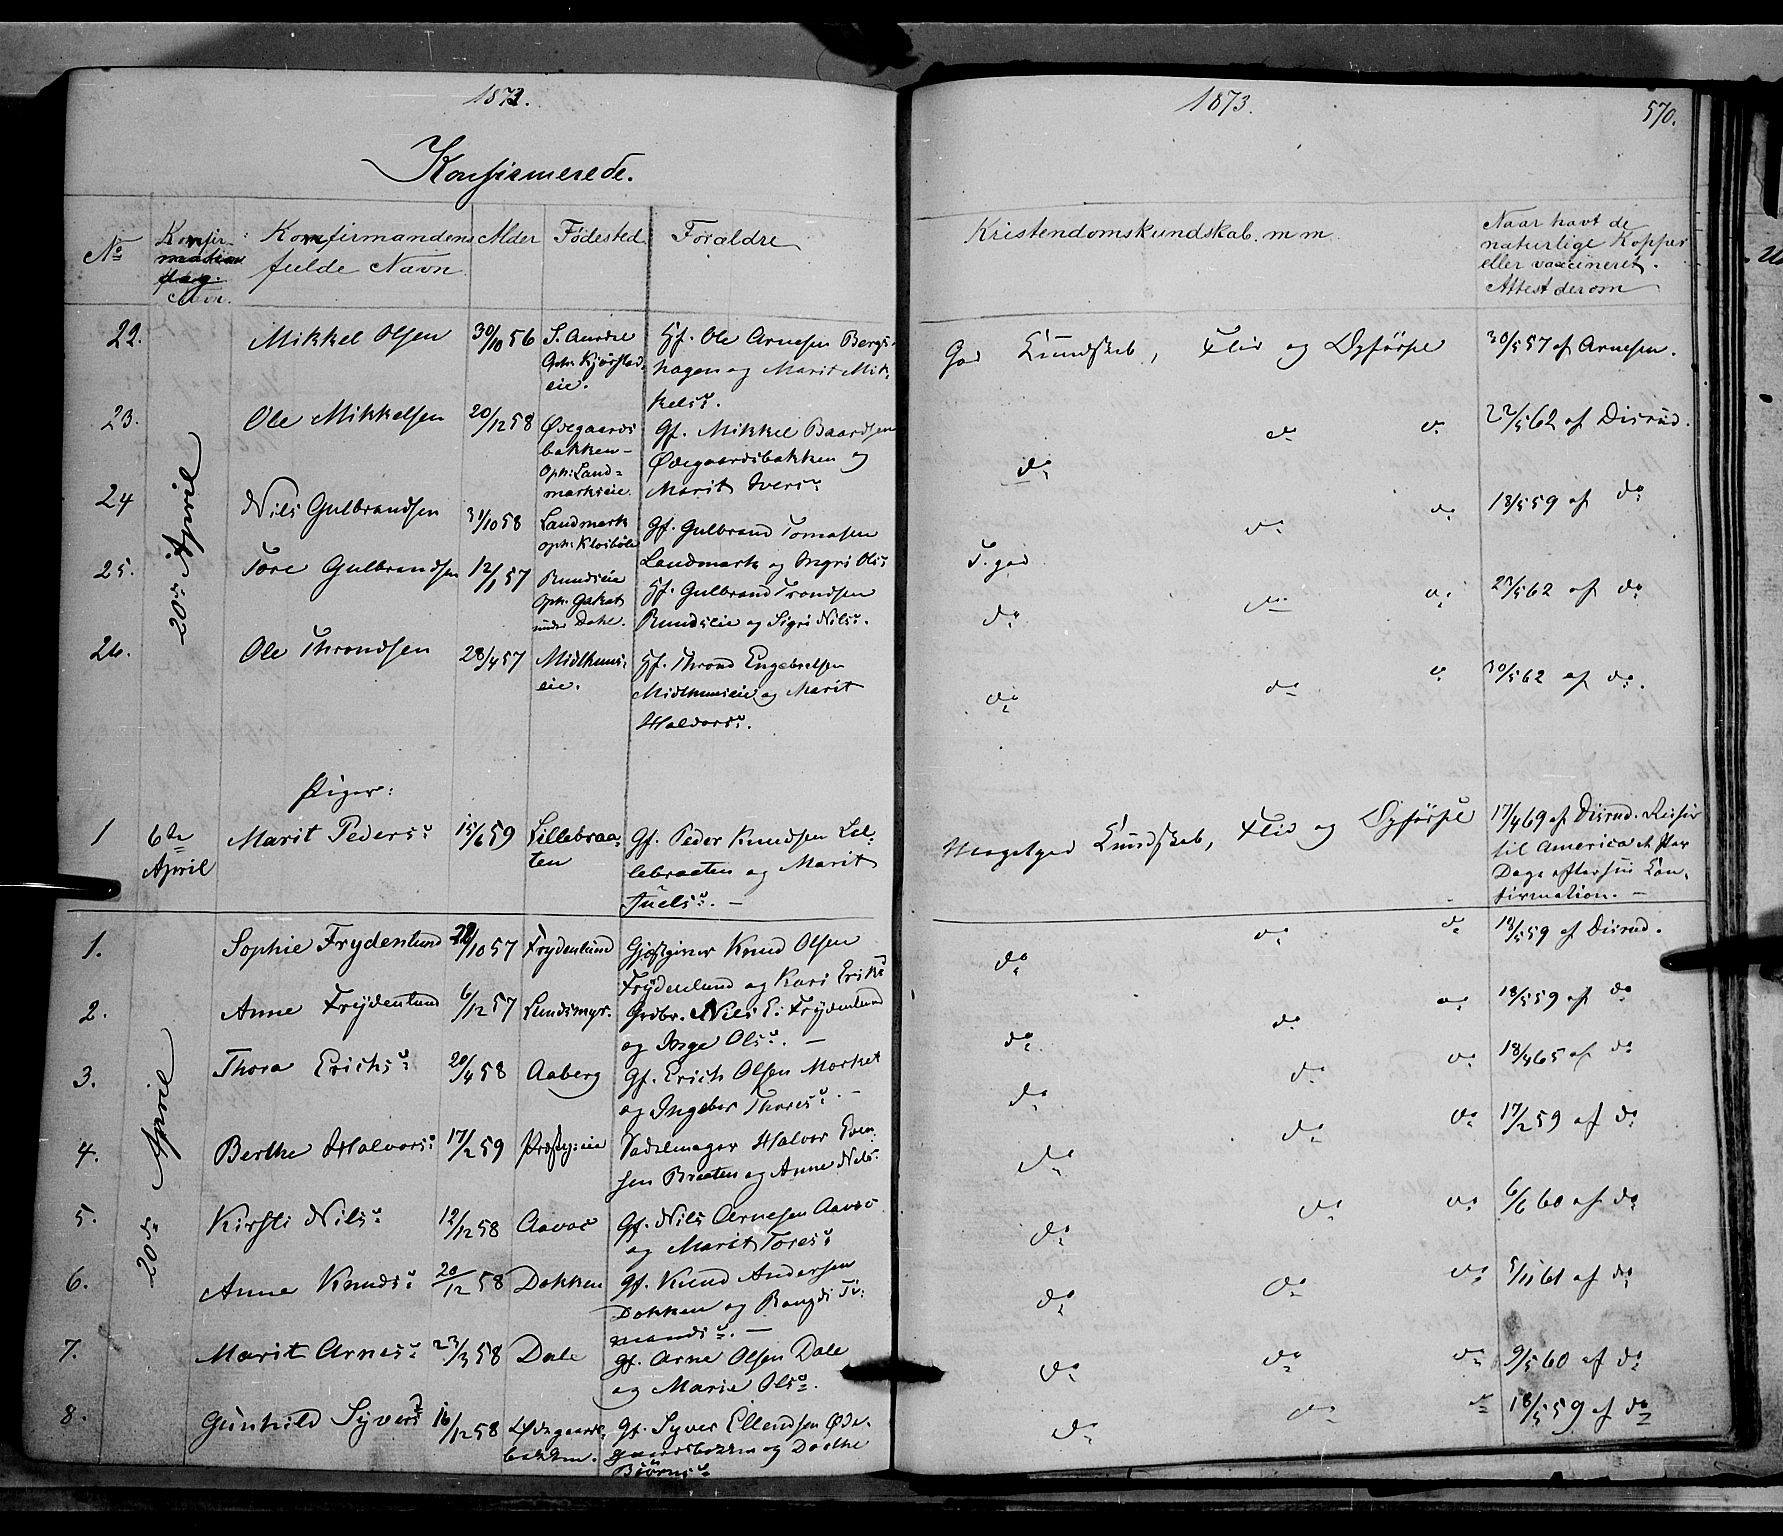 1873.
Konfirmerede.
No
Konfir-
mations
dag.
Navn.
Konfirmandens
fulde Navn
Alder
Fødested
Forældre
22.
Mikkel Olsen
30/10 56
S. Aurdal
Oph. Kjørstad
eie.
Hf. Ole Arnesen Bergs-
hagen og Marit Mik-
kelsd.
23.
Ole Mikkelsen
20/12 58
Ødegaards
bakken-
Oph: Land=
markseie.
Gf. Mikkel Baardsen
Ødegaardsbakken og
Marit Iversd
20de April
24
Nils Gulbrandsen
31/10 58
Landmark
oph:
Gf. Gulbrand Tomasen
Landmark og Ingri Olsd
25.
Tore Gulbrandsen
12/1 57
Rundseie
Oph.
under Dahl.
Hf. Gulbrand Trondsen
Rundseie og Sigri Nilsd.
26.
Ole Throndsen
28/4 57
Midthuus-
eie.
Hf. Thrond Engebretsen
Midthuuseie og Marit
Halvorsd.
Piger:
1
6te
April
Marit Pedersd
15/6 59
Lillebraa-
ten
Gf. Peder Knudsen Lil-
lebraaten og Marit
Juelsd. -
1.
Sophie Frydenlund
22/10 57
Frydenlund
Gjæstgiver Knud Olsen
Frydenlund og Kari Eriksd
2.
Anne Frydenlund
6/12 57
Lundsmyr.
Grdbr. Nils E. Frydenlund
og Inge Olsd. -
3.
Thora Erichsd
20/4 58
Aaberg
Gf. Erich Olsen Morket
og Ingebor Thoresd. -
20de April
4.
Berthe Halvorsd
17/2 59
Præstg:eie
Sadelmager Halvor Even-
sen Braaten og Anne Nilsd.
5.
Kirsti Nilsd
12/12 58
Gf. Nils Arnesen
og Marit Toresd
6.
Anne Knudsd
20/12 58
Dokken
Gf. Knud Andersen
Dokken og Rangdi Ti-
mandsd. -
7.
Marit Arnesd
23/3 58
Dale
Gf. Arne Olsen Dale
og Marie Olsd.
8.
Gunhild Syversd
16/12 58
Ødegaards-
bakken.
Gf. Syver Ellendsen Øde-
gaardsbakken og Dorthe
Biörnsd
1873.
570.
Kristendomskundskab. m m.
Naar havt de
naturlige Kopper
eller vaccineret.
Attest derom
God Kundskab, Flid og Opførsel
30/5 57 af Arnesen.
do do do
22/5 62 af Disrud.
T. god do do
18/5 59 af do
do do do
25/5 62 af do
do do do
30/5 62 af do.
Megetgod Kundskab, Flid og Opførsel
17/4 69 af Disrud. Reiser
til America et Par
Dage efter sin Con-
firmation. -
do do do
18/5 59 af Disrud.
do do do
18/5 59 af do
do do do
18/4 65 af do
do do do
17/2 59 af do
do do do
6/6 60 af do
do do do
5/11 61 af do
do do do
9/5 60 af do
do do do
18/5 59 af do